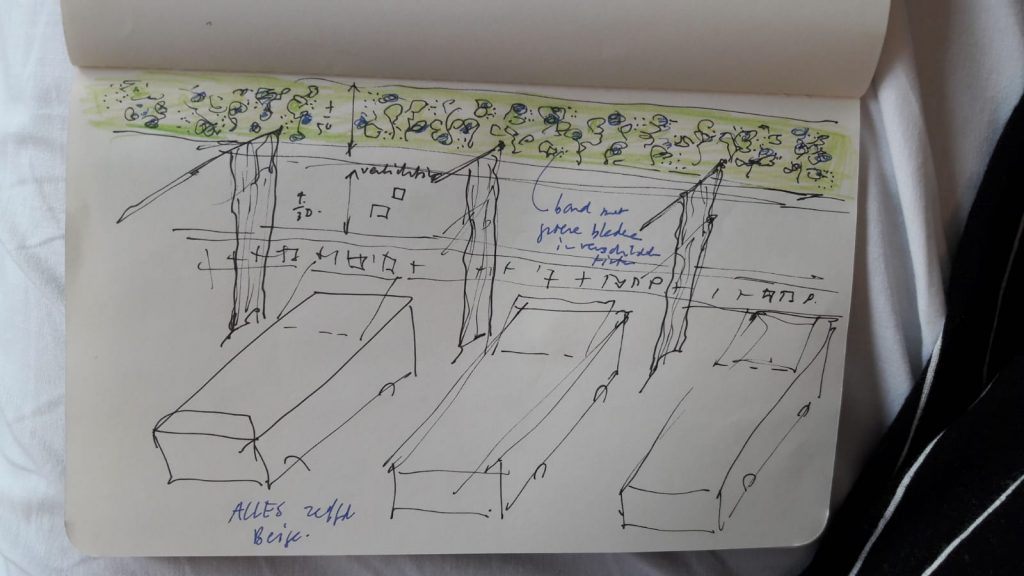 ± 50
± 50.
band met
groene bladeren
in verschillende
tinten
ALLES zelfde
Beige.